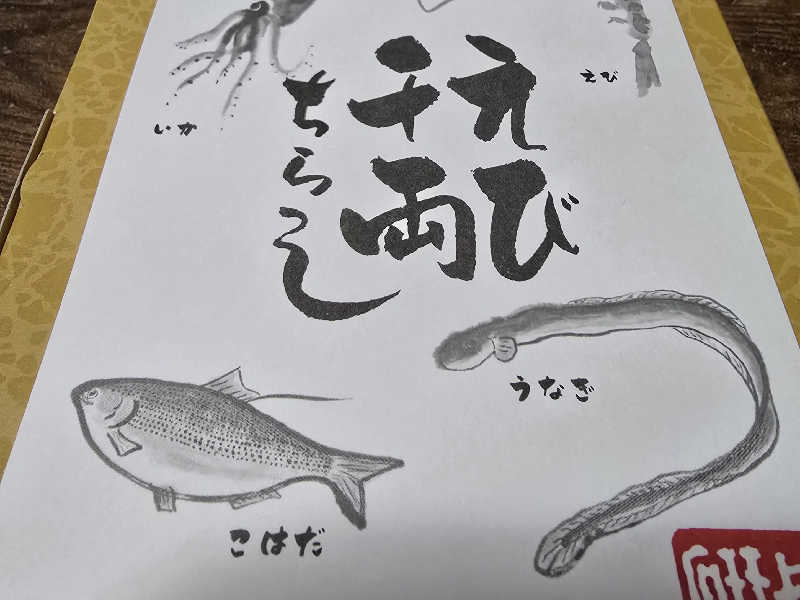 えび
千両
ちらし
いか
えび
うなぎ
こはだ